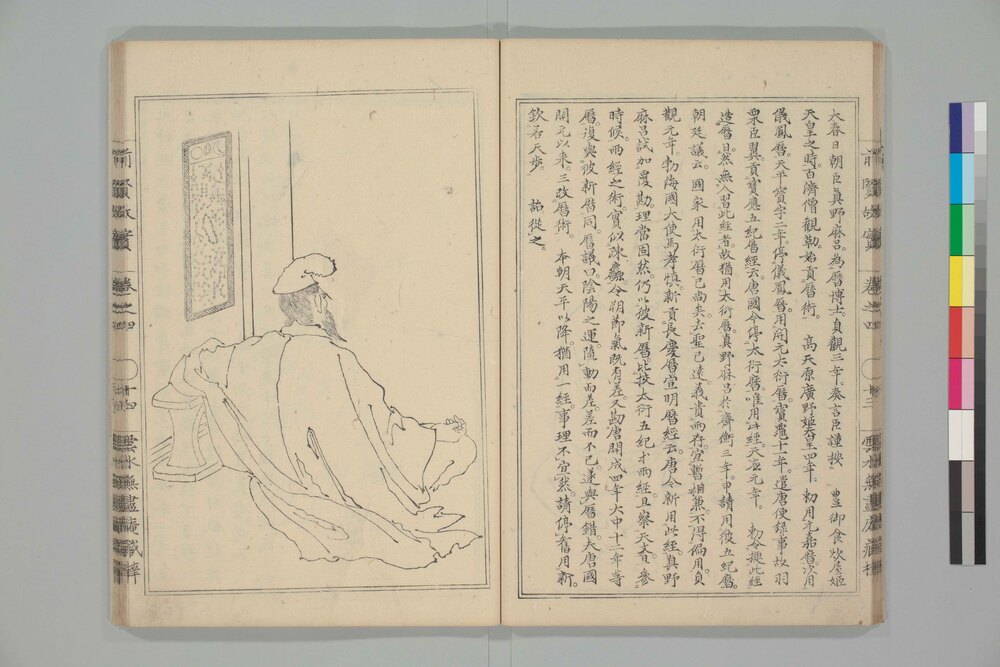 大春日朝臣眞野麻呂為曆博士。貞觀三年。奏言臣謹按 豊御食炊屋姫
天皇之時。百濟僧觀勒始貢曆術。 高天原廣野姫天皇四年。勅用元嘉曆次用
儀鳳曆。天平寶字二年。停儀鳳曆。用開元大衍曆。寶龜十一年。遣唐使録事故羽
栗臣翼貢寶應五紀曆經。云唐國今停大衍曆。唯用此經。天應元年。 勅令據此經
造曆日。然無人習此經者。故猶用大衍曆。眞野麻呂於齊衡三年。申請用彼五紀曆。
朝廷議云。國家用大衍曆已尚矣。去聖已遠。義貴兩存。宜暫相兼。不得偏用。貞
觀元年。勃海國大使馬孝慎。新貢長慶曆宣明曆經。云唐今新用此經。真野
麻呂試加覆勘。理當固然。仍以彼新曆。比挍大衍五紀才兩經。且察天文。且參
時候。兩經之術。實似踈麤。令朔節氣既有差。又勘唐開成四年大中十二年等
曆。復與彼新曆同。曆議曰。陰陽之運。隨動而差。差而不已。遂與曆錯。大唐國
開元以来。三改曆術。 本朝天平以降。猶用一經。事理不宜然。請停舊用新。
欽若天歩。 詔從之。
前賢故實 卷之四 十三 雲水無盡庵藏梓
前賢故實 卷之四 十四 雲水無盡庵藏梓